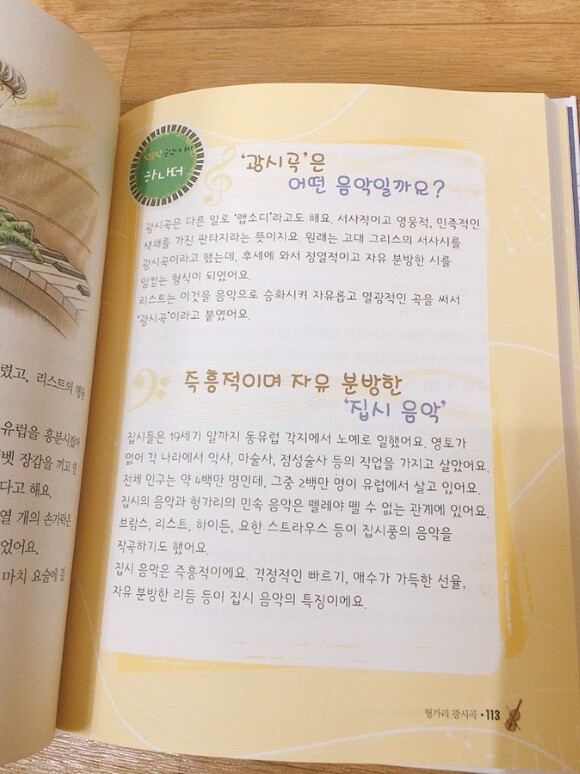 하나더
'광시곡'은
어떤 음악일까요?
광시곡은 다른 말로 '랩소디'라고도 해요. 서사적이고 영웅적, 민족적인
색채를 가진 판타지라는 뜻이지요. 원래는 고대 그리스의 서사시를
광시곡이라고 했는데, 후세에 와서 정열적이고 자유 분방한 시를
일컫는 형식이 되었어요.
리스트는 이것을 음악으로 승화시켜 자유롭고 열광적인 곡을 써서
'광시곡'이라고 붙였어요.
즉흥적이며 자유 분방한
'집시 음악'
집시들은 19세기 말까지 동유럽 각지에서 노예로 일했어요. 영토가
없어 각 나라에서 악사, 마술사, 점성술사 등의 직업을 가지고 살았어요.
전체 인구는 약 4백만 명인데, 그중 2백만 명이 유럽에서 살고 있어요.
집시의 음악과 헝가리의 민속 음악은 뗄레야 뗄 수 없는 관계에 있어요.
브람스, 리스트, 하이든, 요한 스트라우스 등이 집시풍의 음악을
작곡하기도 했어요.
집시 음악은 즉흥적이에요. 격정적인 빠르기, 애수가 가득한 선율,
자유 분방한 리듬 등이 집시 음악의 특징이에요.
렸고, 리스트의
유럽을 흥분시켰어
벳 장갑을 끼고
다고 해요.
열 개의 손가락은
었어요.
마치 요술에
헝가리 광시곡 • 113